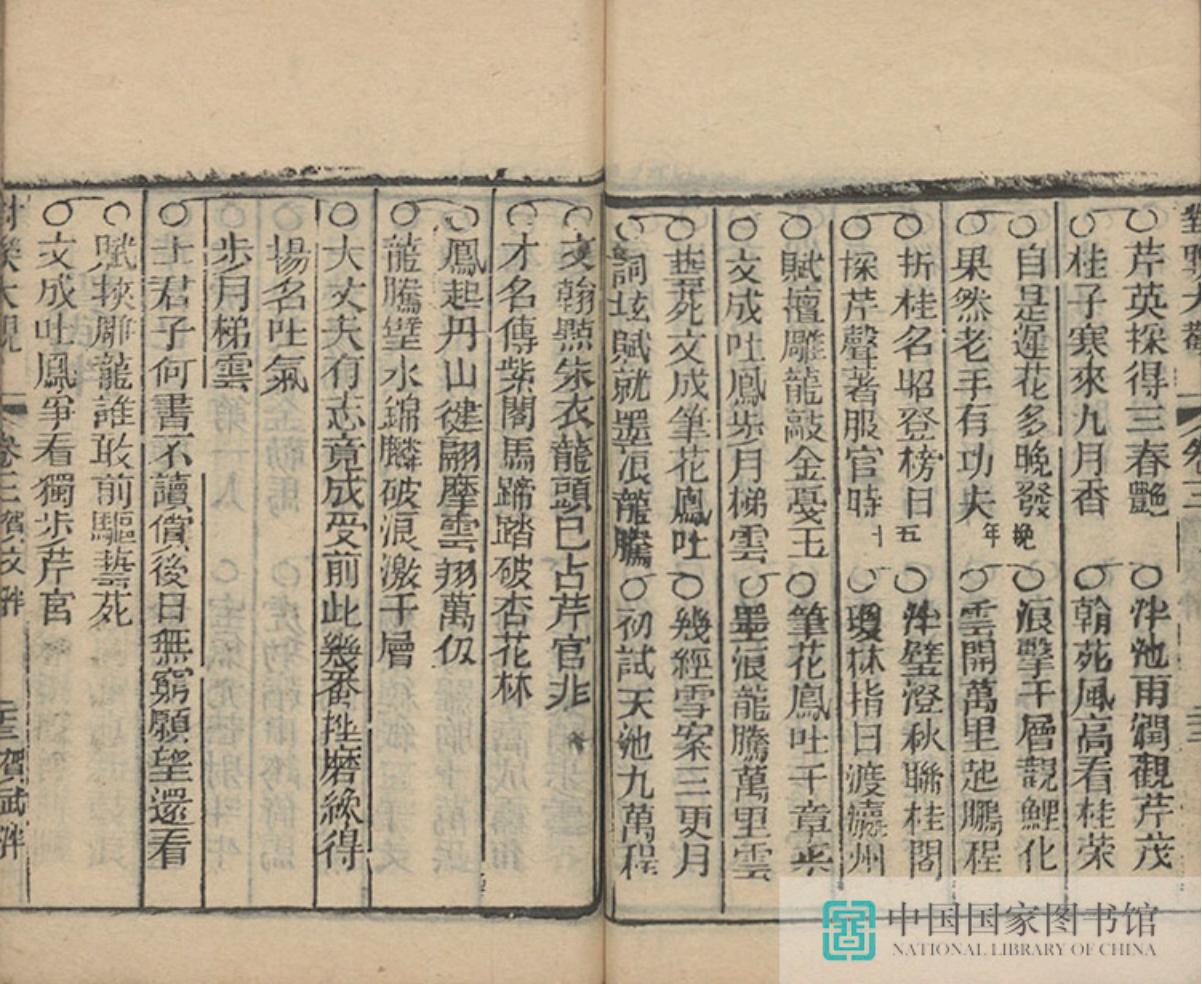 對聯大觀 卷三
○芹英採得三春艷 ○泮池雨潤觀芹茂
○桂子寒來九月香 ○翰苑風高看桂荣
○自是遲花多晚發 晚 ○浪擊千層觀鯉化
○果然老手有功夫 年 ○雲開萬里起鵬程
○折桂名昭登榜日 五 ○泮壁澄秋聯桂閣
○採芹聲著服官時 十 ○瓊林指日渡瀛州
○賦壇雕龍敲金戞玉 ○筆花鳳吐千章采
○文成吐鳳步月梯雲 ○墨浪龍騰萬里雲
○藝死文成筆花鳳吐 ○幾經雪案三更月
○詞垓賦就墨浪龍騰 ○初試天池九萬程
○文翰點朱衣龍頭已占芹官兆
○才名傳紫閣馬蹄踏破杏花林
○鳳起丹山健翮摩雲翔萬仭
○龍騰壁水錦麟破浪激千層
○大丈夫有志竟成受前此幾番挫磨纔得
揚名吐氣
步月梯雲
○士君子何書不讀償後日無窮願望還看
○賦挾雕龍誰敢前驅藝死
○文成吐鳳爭看獨步芹官
對聯大觀 卷三 賀文泮 賀武泮
中国国家图书馆
NATIONAL LIBRARY OF CHINA